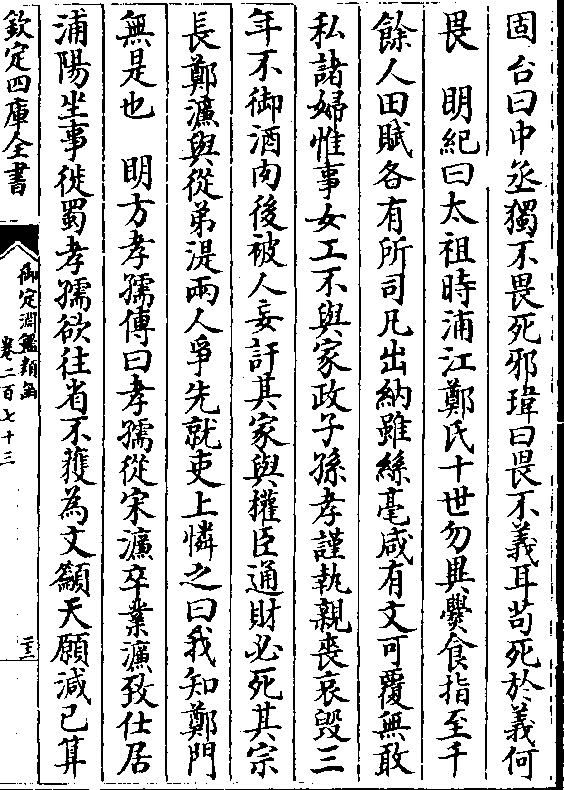 固台曰中丞獨不畏死邪瑋曰畏不義耳苟死於義何
畏　明紀曰太祖時浦江鄭氏十世勿異爨食指至千
餘人田賦各有所司凡出納雖絲毫咸有文可覆無敢
私諸婦惟事女工不與家政子孫孝謹執親喪哀毀三
年不御酒肉後被人妄訐其家與權臣通財必死其宗
長鄭濂與從弟湜兩人爭先就吏上憐之曰我知鄭門
無是也　明方孝孺傳曰孝孺從宋濂卒業濂致仕居
浦陽坐事徙蜀孝孺欲往省不獲為文籲天願減已算
欽定四庫全書
御定淵鑑類函
卷二百七十三